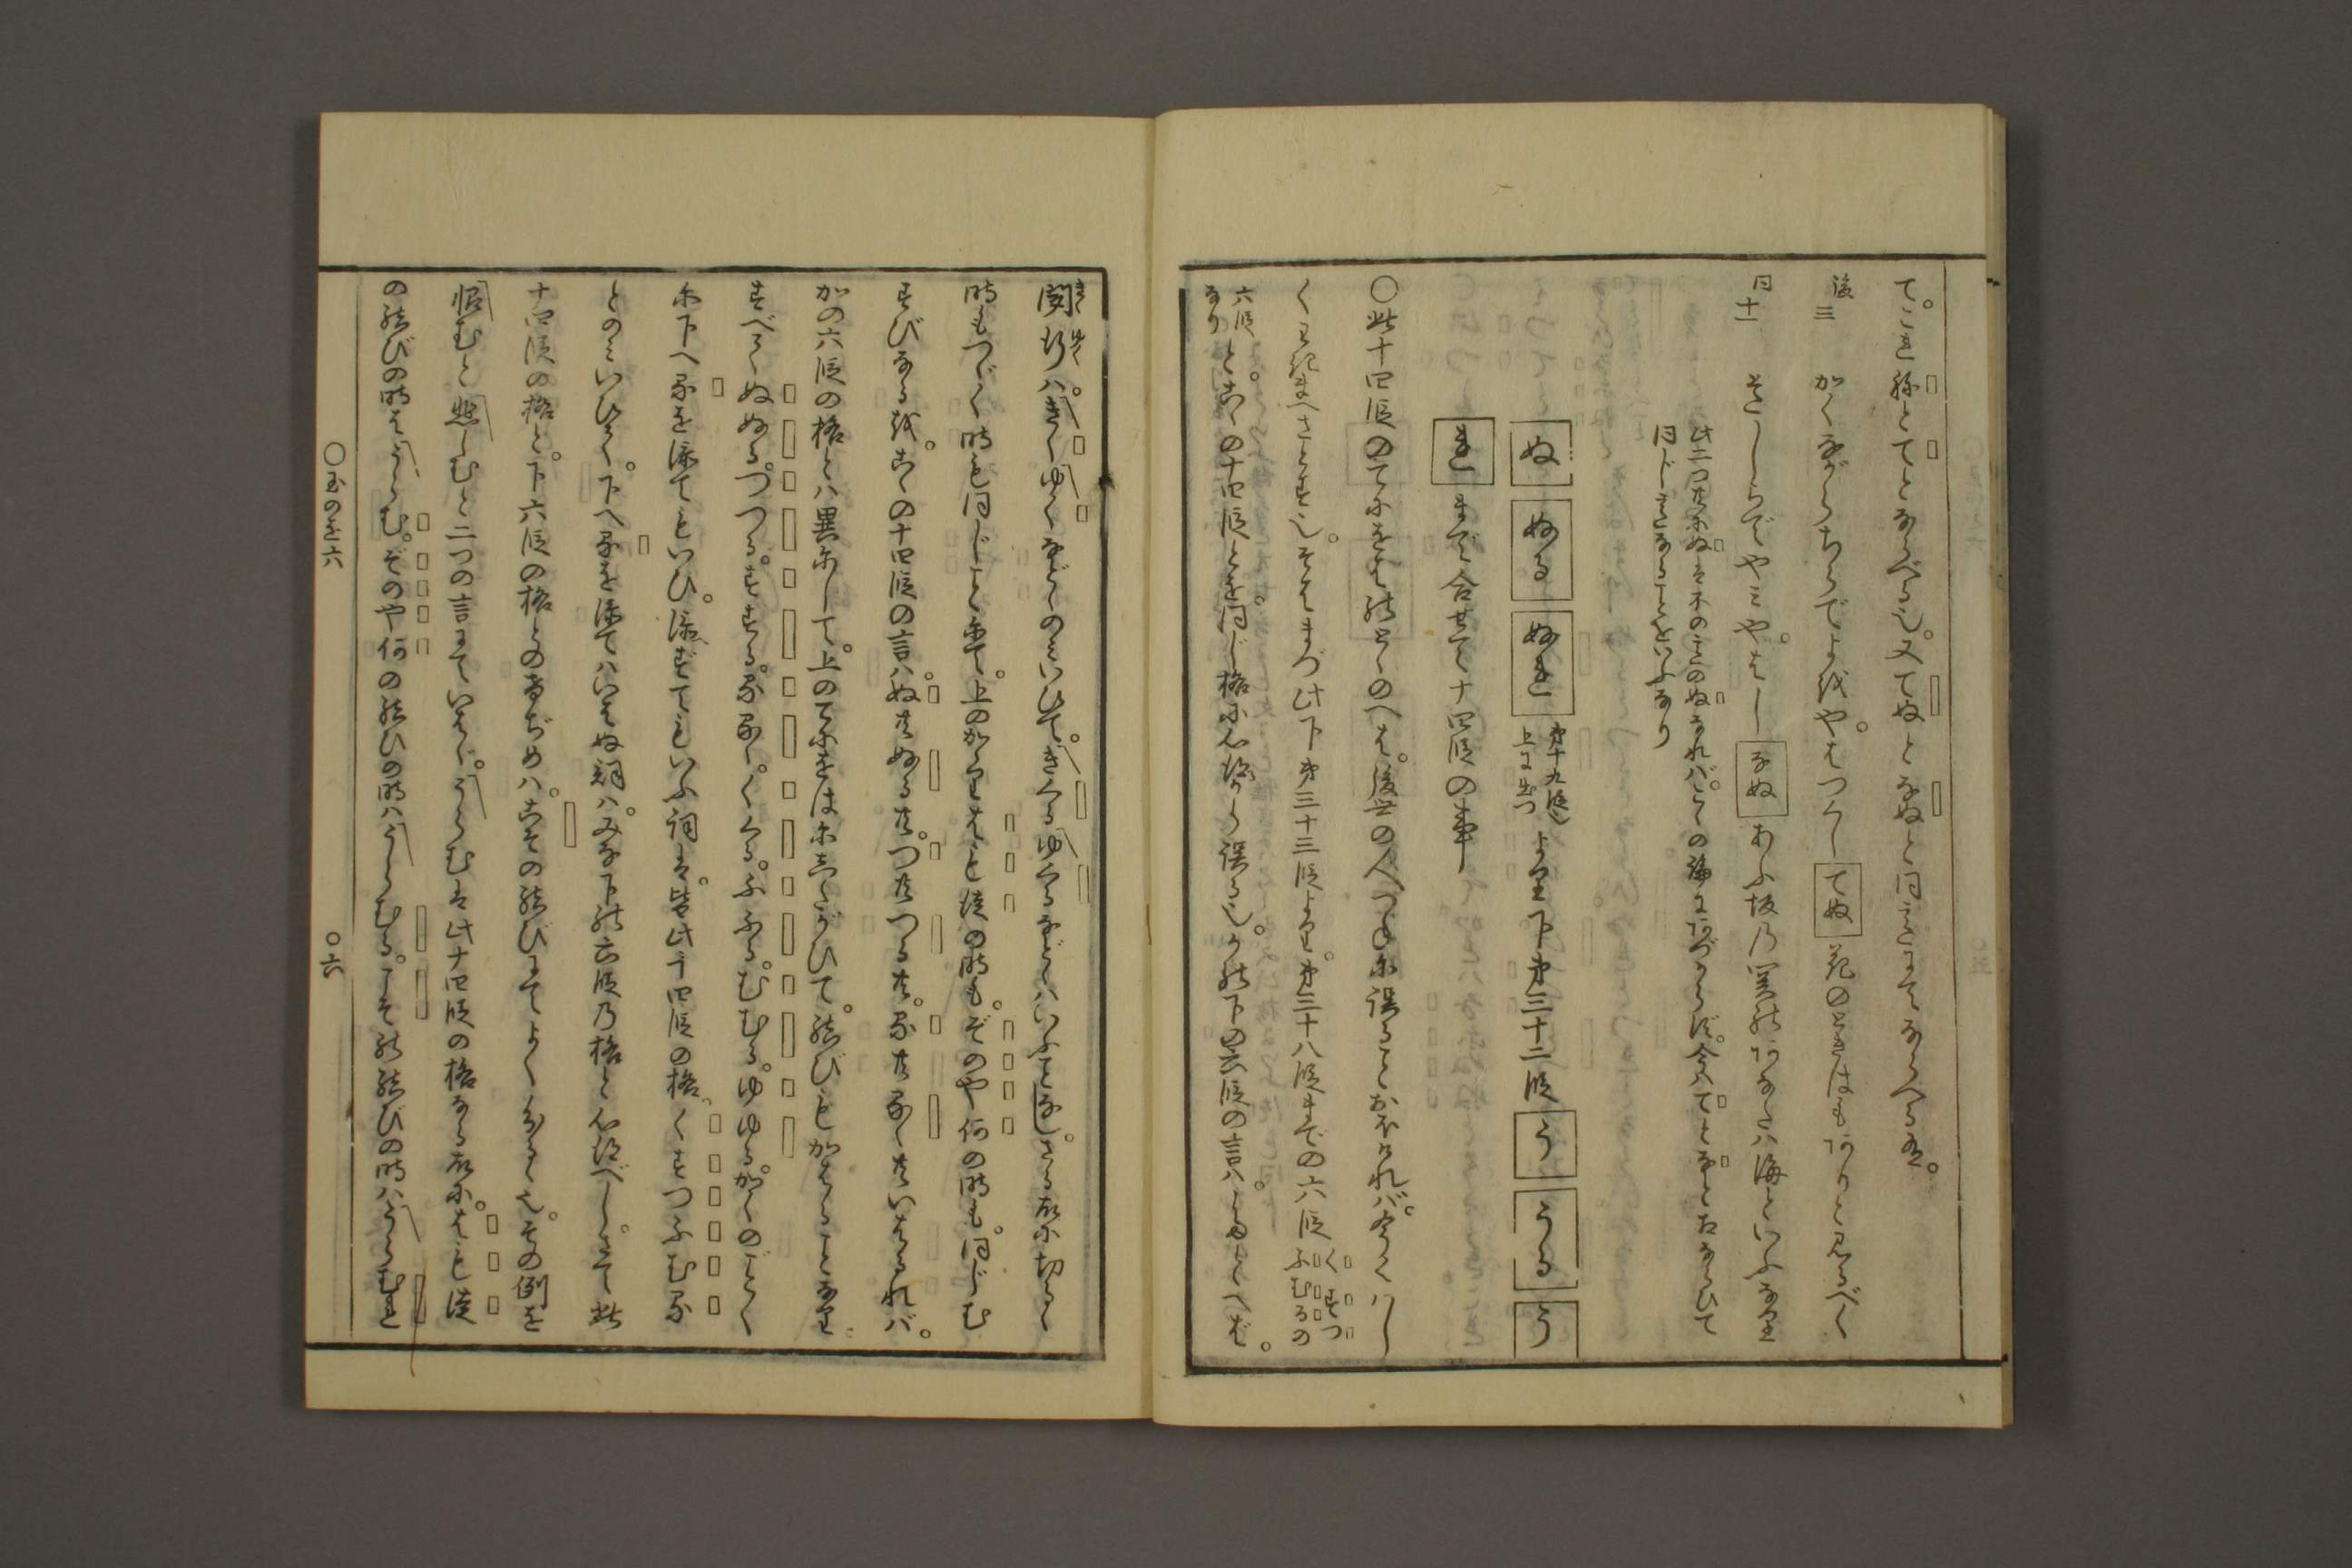 て。これ稀とてとならべる也。又てぬとなぬと同意にてならべる也。
後三 かくながらちらでよをやはつくしてぬ花のときはもありと見るべく
同十一 そこしらでやみやはしなぬあふ坂乃関のあなたハ海といふなり
此二つ共にぬは不の意のぬなれバこの論にあづからず。今ハてとなとたならひて
同じ意なることをいふなり
ぬ ぬる ぬれ 第十九段也上に出つ より下第三十二段 う うる う
れ まで合せて十四段の事
○此十四段のてにをはのとゝのへは。後世の人つねに誤ることおほけれバ。今くハし
くわきまへさとす也。そはまづ此下第三十三段より。第三十八段までの六段 くすつふむるの
六段なり と。こゝの十四段とを。同じ格に心得て誤る也。かの下の六段の言ハ。たとへば。
聞行ハ。きくゆくなどのミいひて。きくるゆくるなどハいふことなし。さる故に切るゝ
時もつゞく時も同じことにて。上のかゝりはも徒の時も。ぞのや何の時も。同じむ
すびなるを。こゝの十四段の言ハ。ぬ共ぬる共。つ共つる共。る共るゝ共いはるれバ。
かの六段の格とハ異にして。上のてにをはにしたがひて。結びもかはることなり。
すべてぬぬる。つつる。すする。るるゝ。くくる。ふふる。むむる。ゆゆる。かくのごとく
に下へるを添てもいひ。添ずてもいふ詞は。皆此十四段の格。くすつふむる
とのミいひて。下へるを添てハいはぬ詞ハ。みな下の六段乃格と心得べし。さて此
十四段の格と。下六段の格とのけぢめハ。こその結びにてよく分るゝ也。その例を
恨むと思しむと二つの言にていはゞ。うらむは此十四段の格なる故に。はも徒
の結びの時はうらむ。ぞのや何の結ひの時ハうらむる。こその結びの時ハうらむれと
○玉のを六 ○六